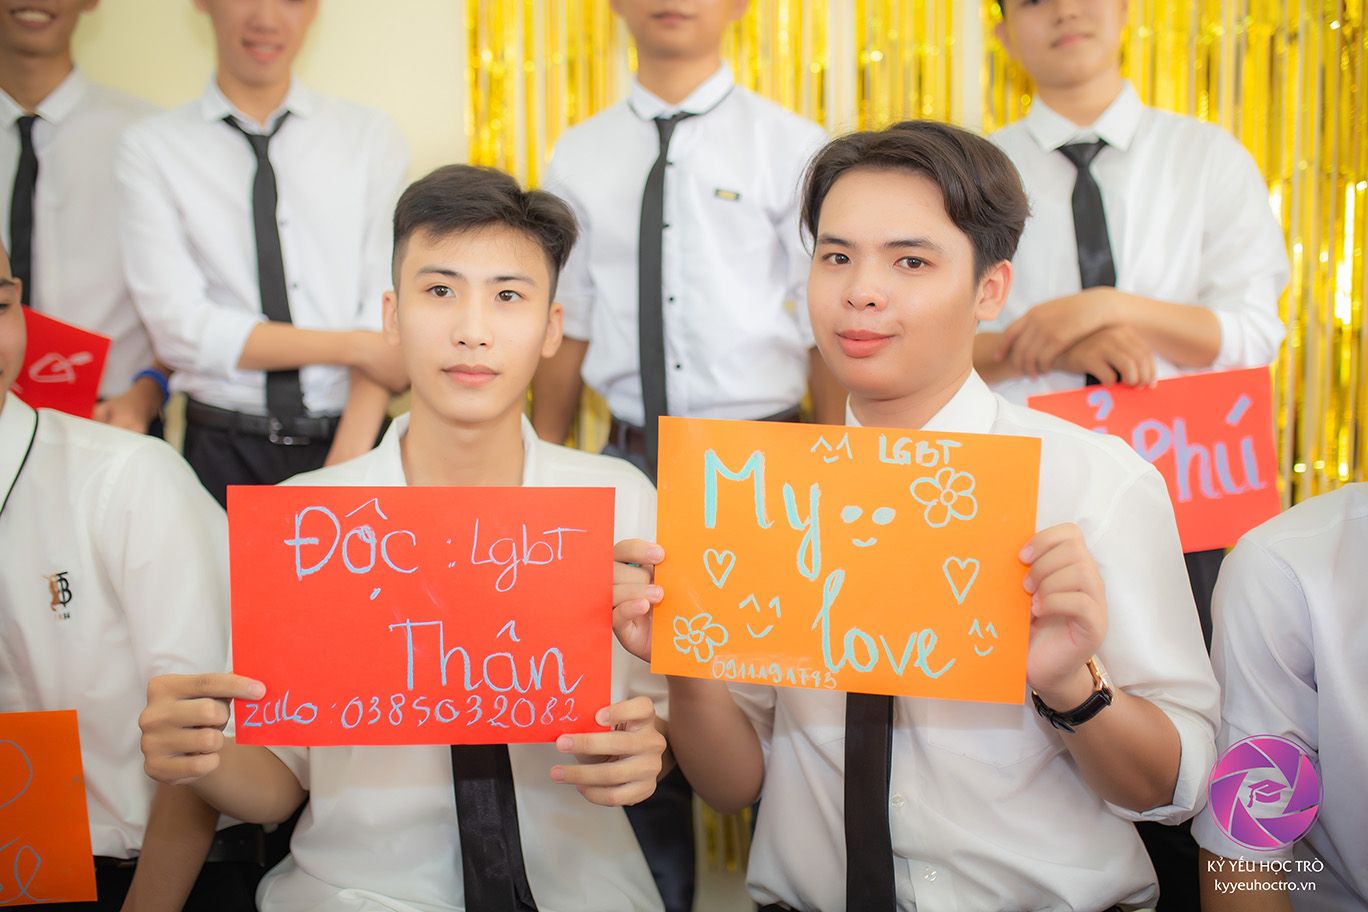 Độc : LgbT
Thân
zalo : 0385032082
LGBT
My
love
Phú
KỶ YẾU HỌC TRÒ
kyyeuhoctro.vn